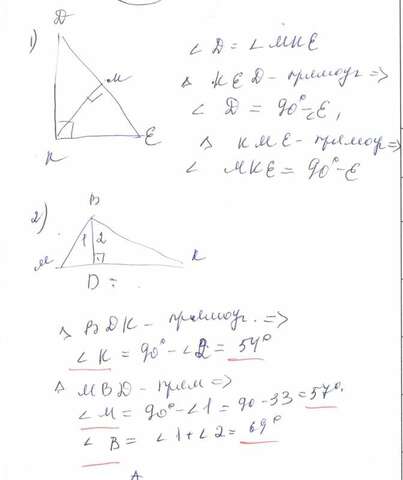 1)
D
M
K
E
∠ D = ∠ MKE
△ KED - прямоуг =>
∠ D = 90° - E,
△ KME - прямоуг =>
∠ MKE = 90° - E
2)
B
1 2
M
K
D
△ BDK - прямоуг. =>
∠ K = 90° - ∠ 2 = 54°
△ MBD - прям =>
∠ M = 90° - ∠1 = 90 - 33 = 57°.
∠ B = ∠1 + ∠2 = 69°